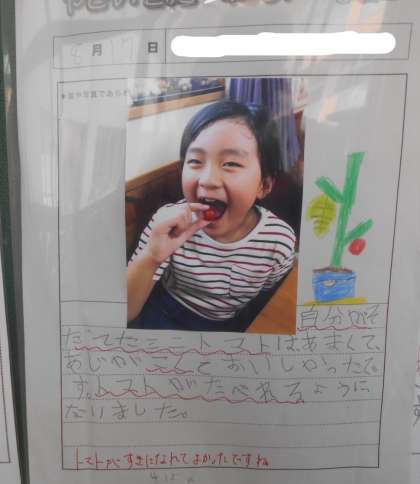 8月17日
★絵や写真であらわ
自分がそ
だてたミニトマトはあまくて、
あじがこくておいしかったで
す。トマトがたべれるように
なりました。
トマトがすきになれてよかったですね